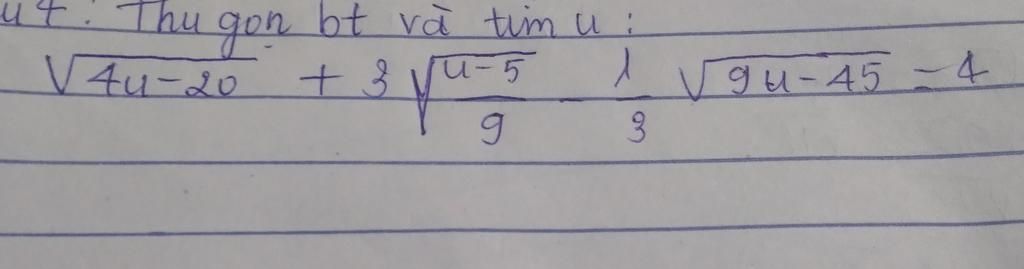 u 4: Thu gọn bt và tìm u:
√(4u-20) + 3√((u-5)/9) - 1/3 √(9u-45) = 4